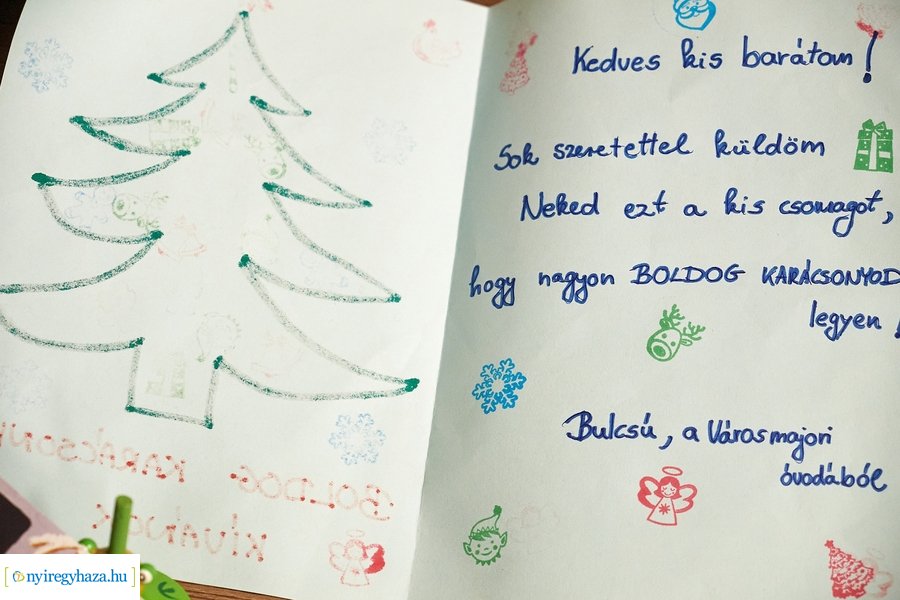 Kedves kis barátom!
Sok szeretettel küldöm
Neked ezt a kis csomagot,
hogy nagyon BOLDOG KARÁCSONYOD
legyen!
Bulcsú, a Városmajori
óvodából
BOLDOG KARÁCSONY
KÍVÁNOK
[nyiregyhaza.hu]